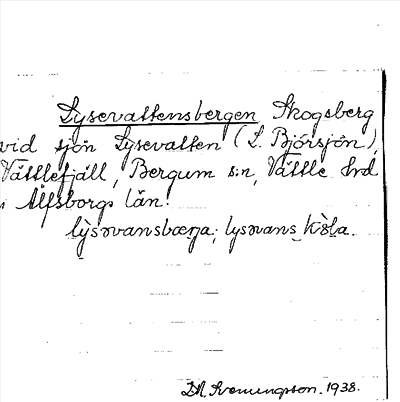 Lysevattensbergen Skogsberg
vid sjön Lysevatten (L. Björsjön),
Vättlefjäll, Bergum sn, Vättle hrd
i Älfsborgs län.
lỳsəvansbærɡa; lysəvans
1938.